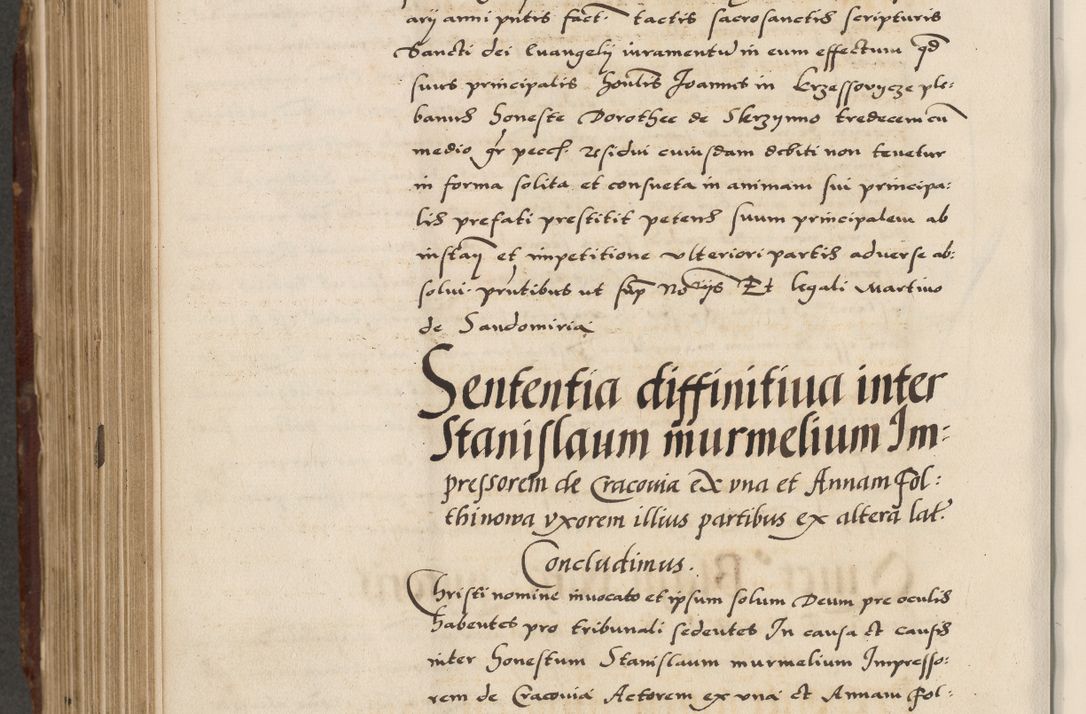 arij anni pntis fact. tactis sacrosanctis scripturis
Sancti dei Euangelij iuramentu in eum effectum qd
suus principalis honlis Joannes in Krzessovycze ple:
banus honeste Dorothee de Skrzynno tredecem cu
medio gr pecc. residui cuiusdam debiti non tenetur
in forma solita et consueta in animam sui principa:
lis prefati prestitit petens suum principalem ab
instan et impetitione vlteriori partis adverse ab:
solui. pntibus ut sup Noijs Et legali Martino
de Sandomiria
Sententia diffinitiua inter
Stanislaum murmelium Im:
pressorem de Cracouia ex vna et Annam Fol:
thinowa vxorem illius partibus ex altera lat.
Concludimus.
Christi nomine inuocato et ipsum solum Deum pre oculis
habentes pro tribunali sedentes In causa et causis
inter honestum Stanislaum murmelium Impresso:
rem de Cracouia Actorem ex vna et Annam Fol: